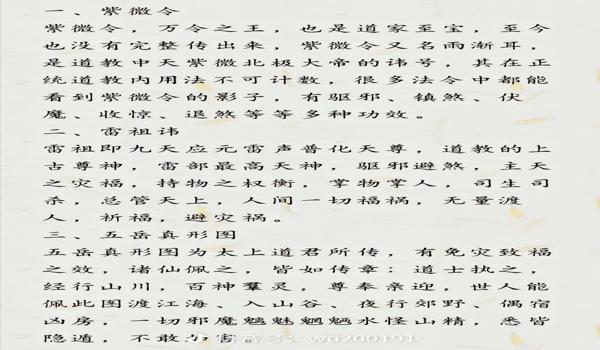 一、紫微令
紫微令，万令之王，也是道家至宝，至今
也没有完整传出来，紫微令又名雨渐耳，
是道教中天紫微北极大帝的讳号，其在正
统道教内用法不可计数，很多法令中都能
看到紫微令的影子，有驱邪、镇煞、伏
魔、收惊、退煞等等多种功效。
二、雷祖讳
雷祖即九天应元雷声普化天尊，道教的上
古尊神，雷部最高天神，驱邪避煞，主天
之灾福，持物之权衡，掌物掌人，司生司
杀，总管天上，人间一切福祸，无量渡
人，祈福，避灾祸。
三、五岳真形图
五岳真形图为太上道君所传，有免灾致福
之效，诸仙佩之，皆如传章；道士执之，
经行山川，百神群灵，尊奉亲迎，世人能
佩此图渡江海、入山谷、夜行郊野、偶宿
凶房，一切邪魔魑魅魍魉水怪山精，悉皆
隐遁，不敢加害。
wu200191